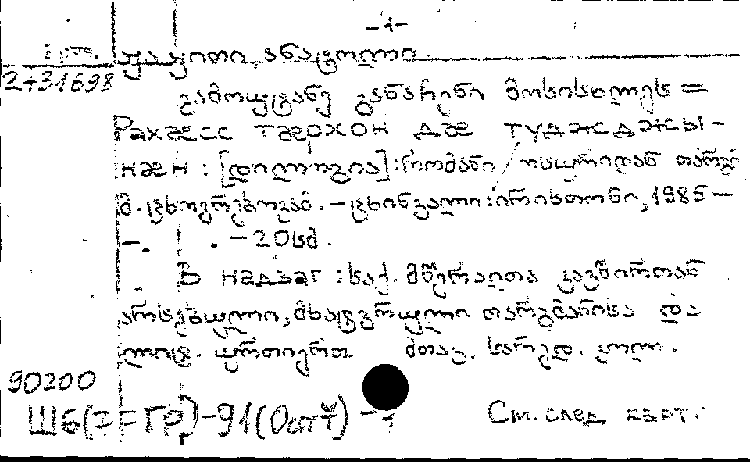 -1-
ჟაჟითი, ანატოლი.
2431698
გამოუტანე განაჩენი მოსისხლეს =
Рахӕсс тӕрхон дӕ туджджы-
нӕн : [დილოგია]: რომანი / ოსურიდან თარგ
მ. ცხოვრებოვამ. – ცხინვალი: ირისთონი, 1985 –
–. – 20 სმ.
В надзаг : საქ. მწერალთა კავშირთან
არსებული, მხატვრული თარგმანისა და
ლიტ. ურთიერთ მთავ. სარედ. კოლ.
90200
Шб(2=Гр)-91(Осет) - 1
См. след карт.